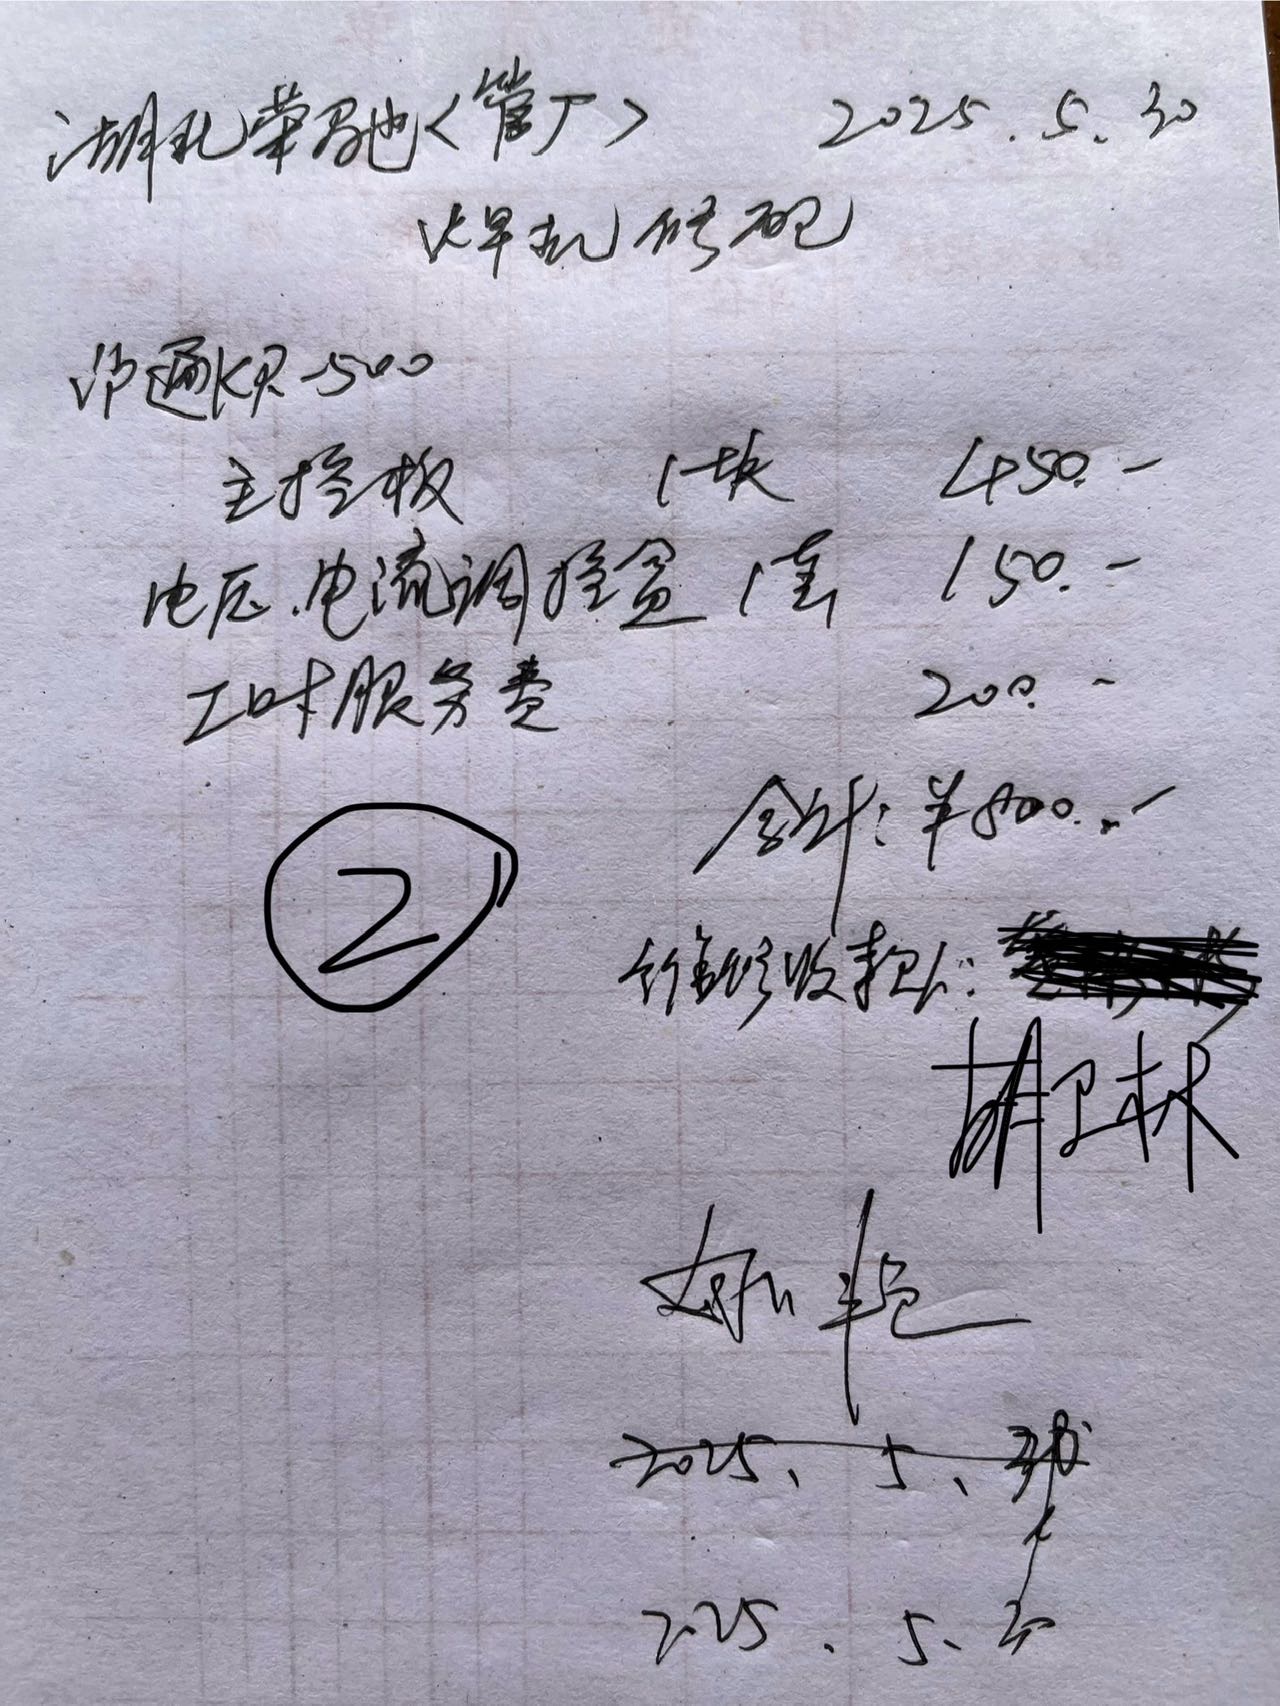 湖北荣驰<管厂> 2025.5.30
焊机修配
沪通KR-500
主控板 1块 450.-
电压、电流调控盒 1套 150.-
工时服务费 200.-
合计:￥800.-
②
维修收款人:
胡卫林
2025、5、
2025、5、30